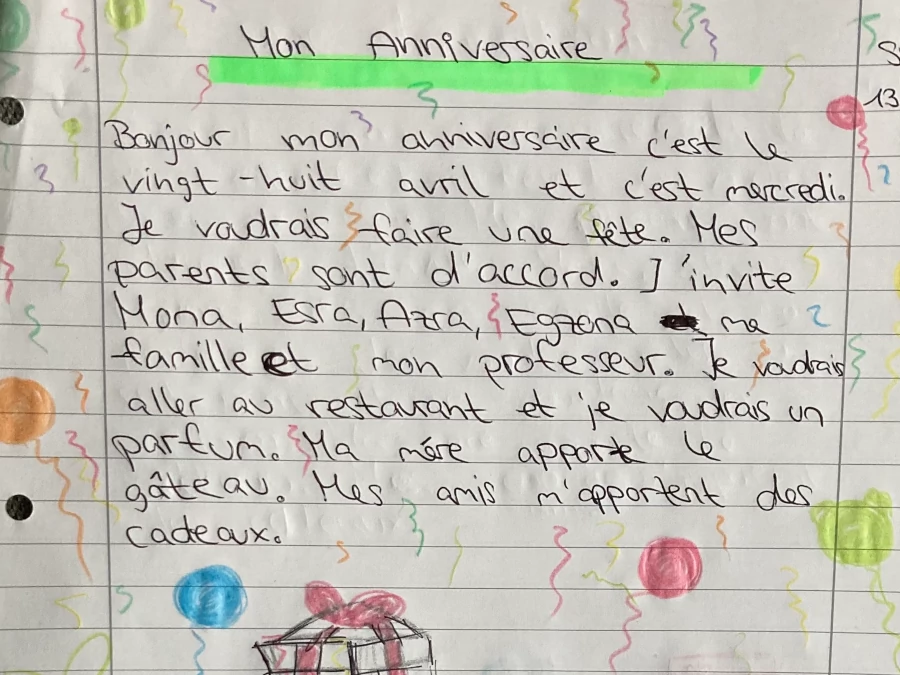 Mon Anniversaire
13
Bonjour mon anniversaire c'est le
vingt-huit avril et c'est mercredi.
Je vadrais faire une fête. Mes
parents sont d'accord. J'invite
Mona, Esra, Azra, Egzona ma
famille et mon professeur. Je vadrais
aller au restaurant et je vadrais un
parfum. Ma mére apporte le
gâteau. Mes amis m'apportent des
cadeaux.